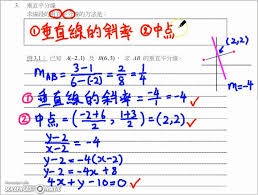 3. 垂直平分線
求線段的垂直平分線的方法是:
①垂直線的斜率 ②中点
例 3.1 已知 A(-2,1) 及 B(6,3), 求 AB 的垂直平分線。
(2,2)
m=-4
mAB = 3-1/6-(-2) = 2/8 = 1/4
① 垂直線的斜率 = -4/1 = -4
② 中点 = (-2+6/2, 1+3/2) = (2,2)
y-2/x-2 = -4
y-2 = -4(x-2)
y-2 = -4x+8
4x+y-10=0